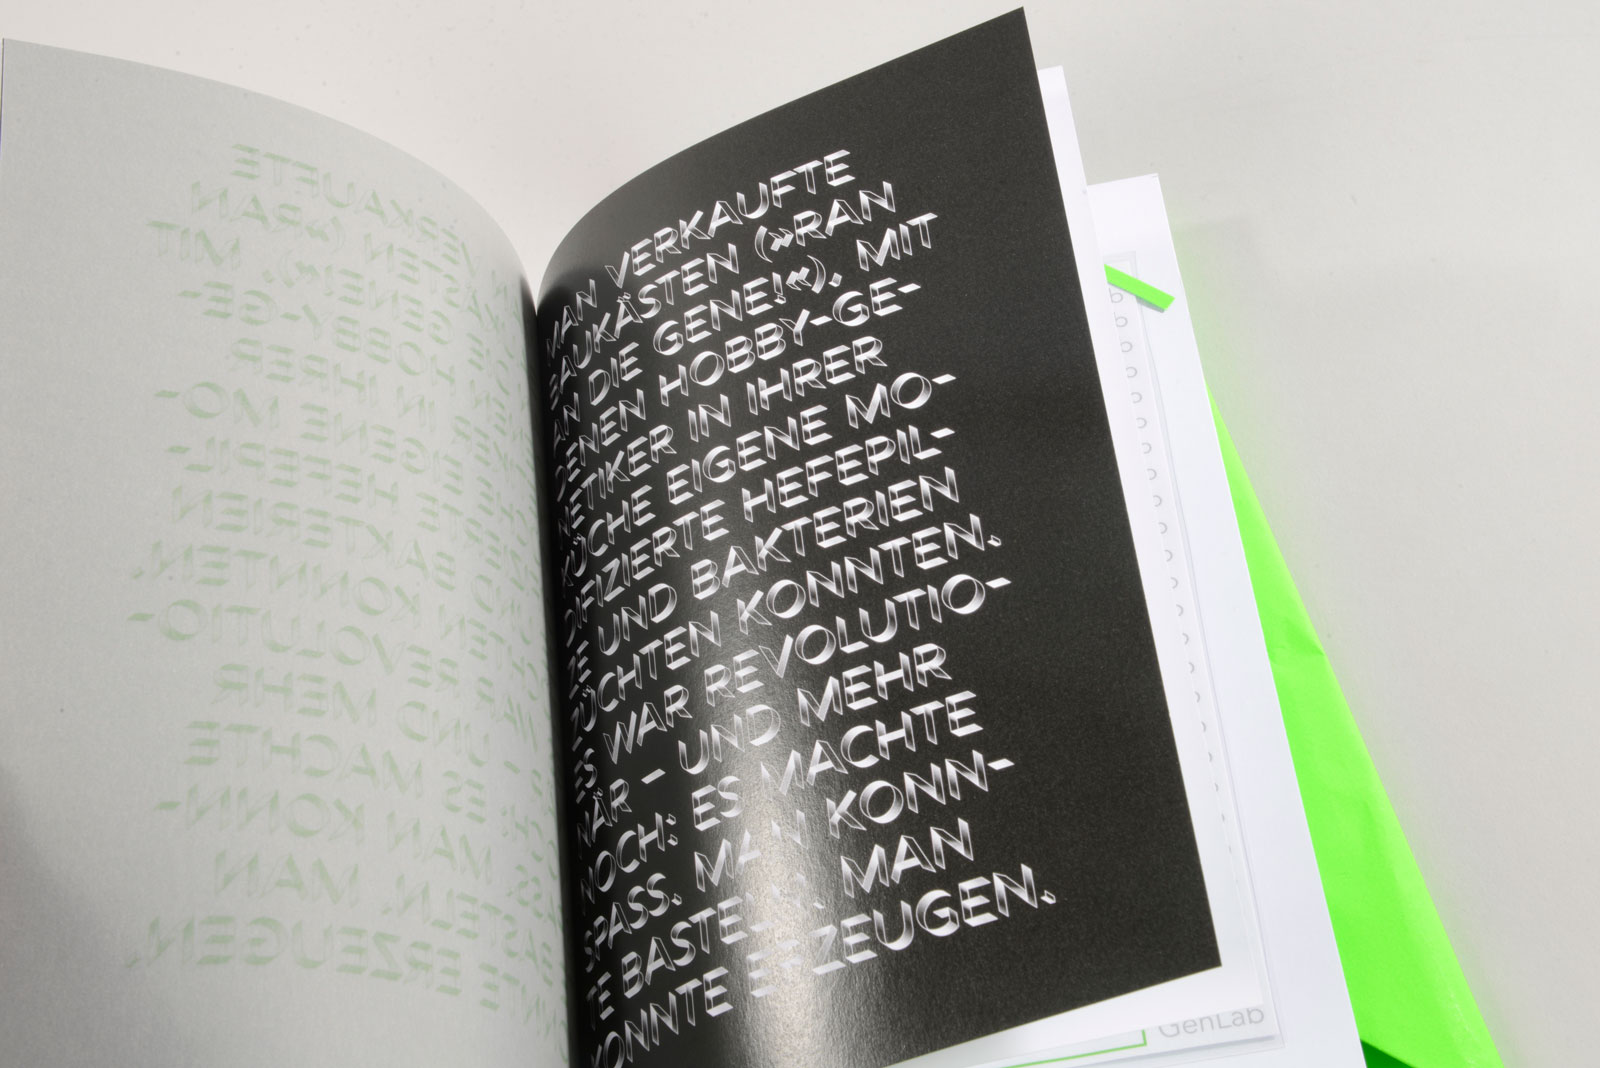 MAN VERKAUFTE
BAUKÄSTEN (»RAN
AN DIE GENE!«), MIT
DENEN HOBBY-GE-
NETIKER IN IHRER
KÜCHE EIGENE MO-
DIFIZIERTE HEFEPIL-
ZE UND BAKTERIEN
ZÜCHTEN KONNTEN.
ES WAR REVOLUTIO-
NÄR - UND MEHR
NOCH: ES MACHTE
SPASS. MAN KONN-
TE BASTELN. MAN
KONNTE ERZEUGEN.
GenLab